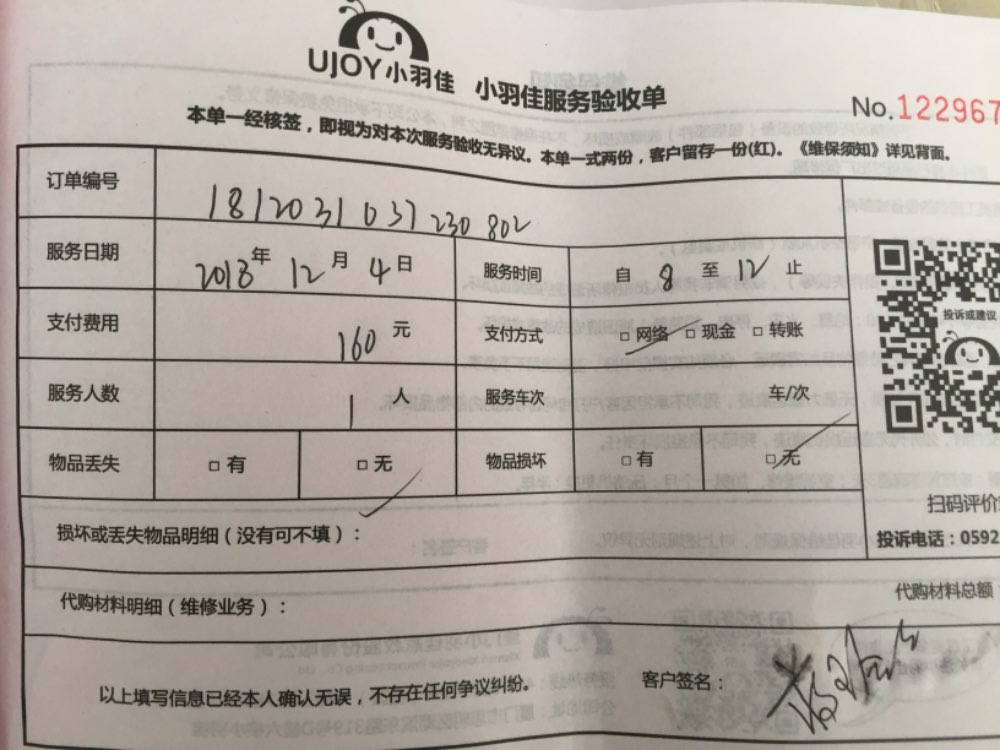 UJOY小羽佳 小羽佳服务验收单
No.122967
本单一经核签，即视为对本次服务验收无异议。本单一式两份，客户留存一份(红)。《维保须知》详见背面。
订单编号 1812031037230802
服务日期 2018年12月4日 服务时间 自8至12止
投诉或建议
支付费用 160元 支付方式 □网络 □现金 □转账
服务人数 1人 服务车次 车/次
物品丢失 □有 □无 物品损坏 □有 □无
扫码评价
损坏或丢失物品明细（没有可不填）：
投诉电话：0592
代购材料明细（维修业务）：
代购材料总额
以上填写信息已经本人确认无误，不存在任何争议纠纷。 客户签名：